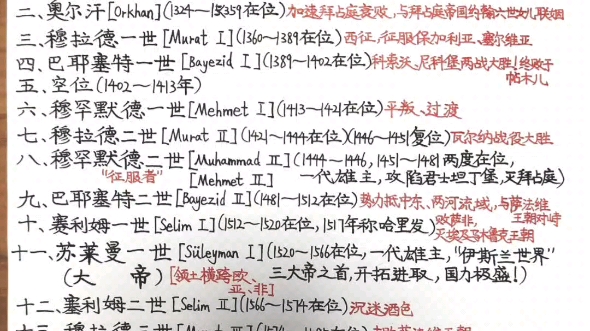 二、奥尔汗[Orkhan](1324～1359在位)加速拜占庭衰败,与拜占庭帝国约翰六世女儿联姻
三、穆拉德一世[Murat I](1360～1389在位)西征,征服保加利亚、塞尔维亚
四、巴耶塞特一世[Bayezid I](1389～1402在位)科索沃、尼科堡两战大胜!终败于帖木儿
五、空位(1402～1413年)
六、穆罕默德一世[Mehmet I](1413～1421在位)平叛、过渡
七、穆拉德二世[Murat II](1421～1444在位)(1446～1451复位)瓦尔纳战役大胜
八、穆罕默德二世[Muhammad II](1444～1446,1451～1481两度在位,
"征服者" [Mehmet II] 一代雄主,攻陷君士坦丁堡,灭拜占庭)
九、巴耶塞特二世[Bayezid II](1481～1512在位)势力抵中东、两河流域,与萨法维王朝对峙
十、赛利姆一世[Selim I](1512～1520在位,1517年称哈里发)败萨非,灭埃及马木鲁克王朝
十一、苏莱曼一世[Süleyman I](1520～1566在位,一代雄主,"伊斯兰世界"
(大 帝)[领土横跨欧、亚、非] 三大帝之首,开拓进取,国力极盛!)
十二、塞利姆二世[Selim II](1566～1574在位)沉迷酒色